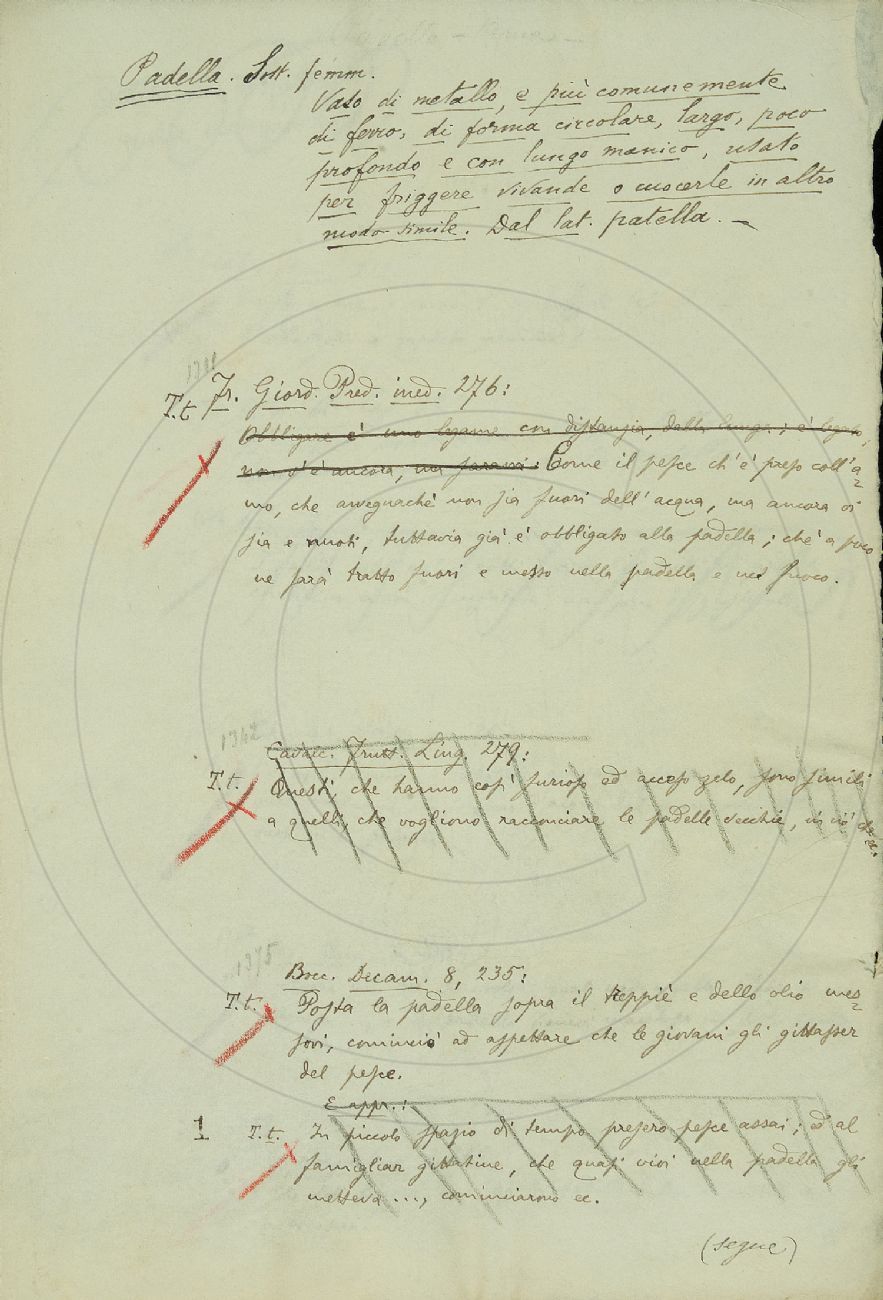 Padella. Sost. femm.
Vaso di metallo, e più comunemente
di ferro, di forma circolare, largo, poco
profondo e con lungo manico, usato
per friggere vivande o cuocerle in altro
modo simile. Dal lat. patella. —
1311
T.t. Fr. Giord. Pred. ined. 276:
Obbligare è uno legame con distanzia, dalla lunga; è legato,
non v'è ancora, ma saravvi. Come il pesce ch'è preso coll'a=
mo, che avvegnachè non sia fuori dell'acqua, ma ancora vi
sia e nuoti, tuttavia già è obbligato alla padella; chè a poco
ne sarà tratto fuori e messo nella padella e nel fuoco.
1342
Cavalc. Frutt. Ling. 279:
T.t. Questi, che hanno così furioso ed acceso zelo, sono simili
a quelli, che vogliono racconciare le padelle vecchie, in ciò
1375
Bocc. Decam. 8, 235:
T.t. Posta la padella sopra il treppiè e dello olio mes=
sovi, cominciò ad aspettare che le giovani gli gittasser
del pesce.
E appr.:
1 T.t. In piccolo spazio di tempo presero pesce assai; ed al
famigliar gittatine, che quasi vivi nella padella gli
metteva ..., cominciarono ec.
(segue)